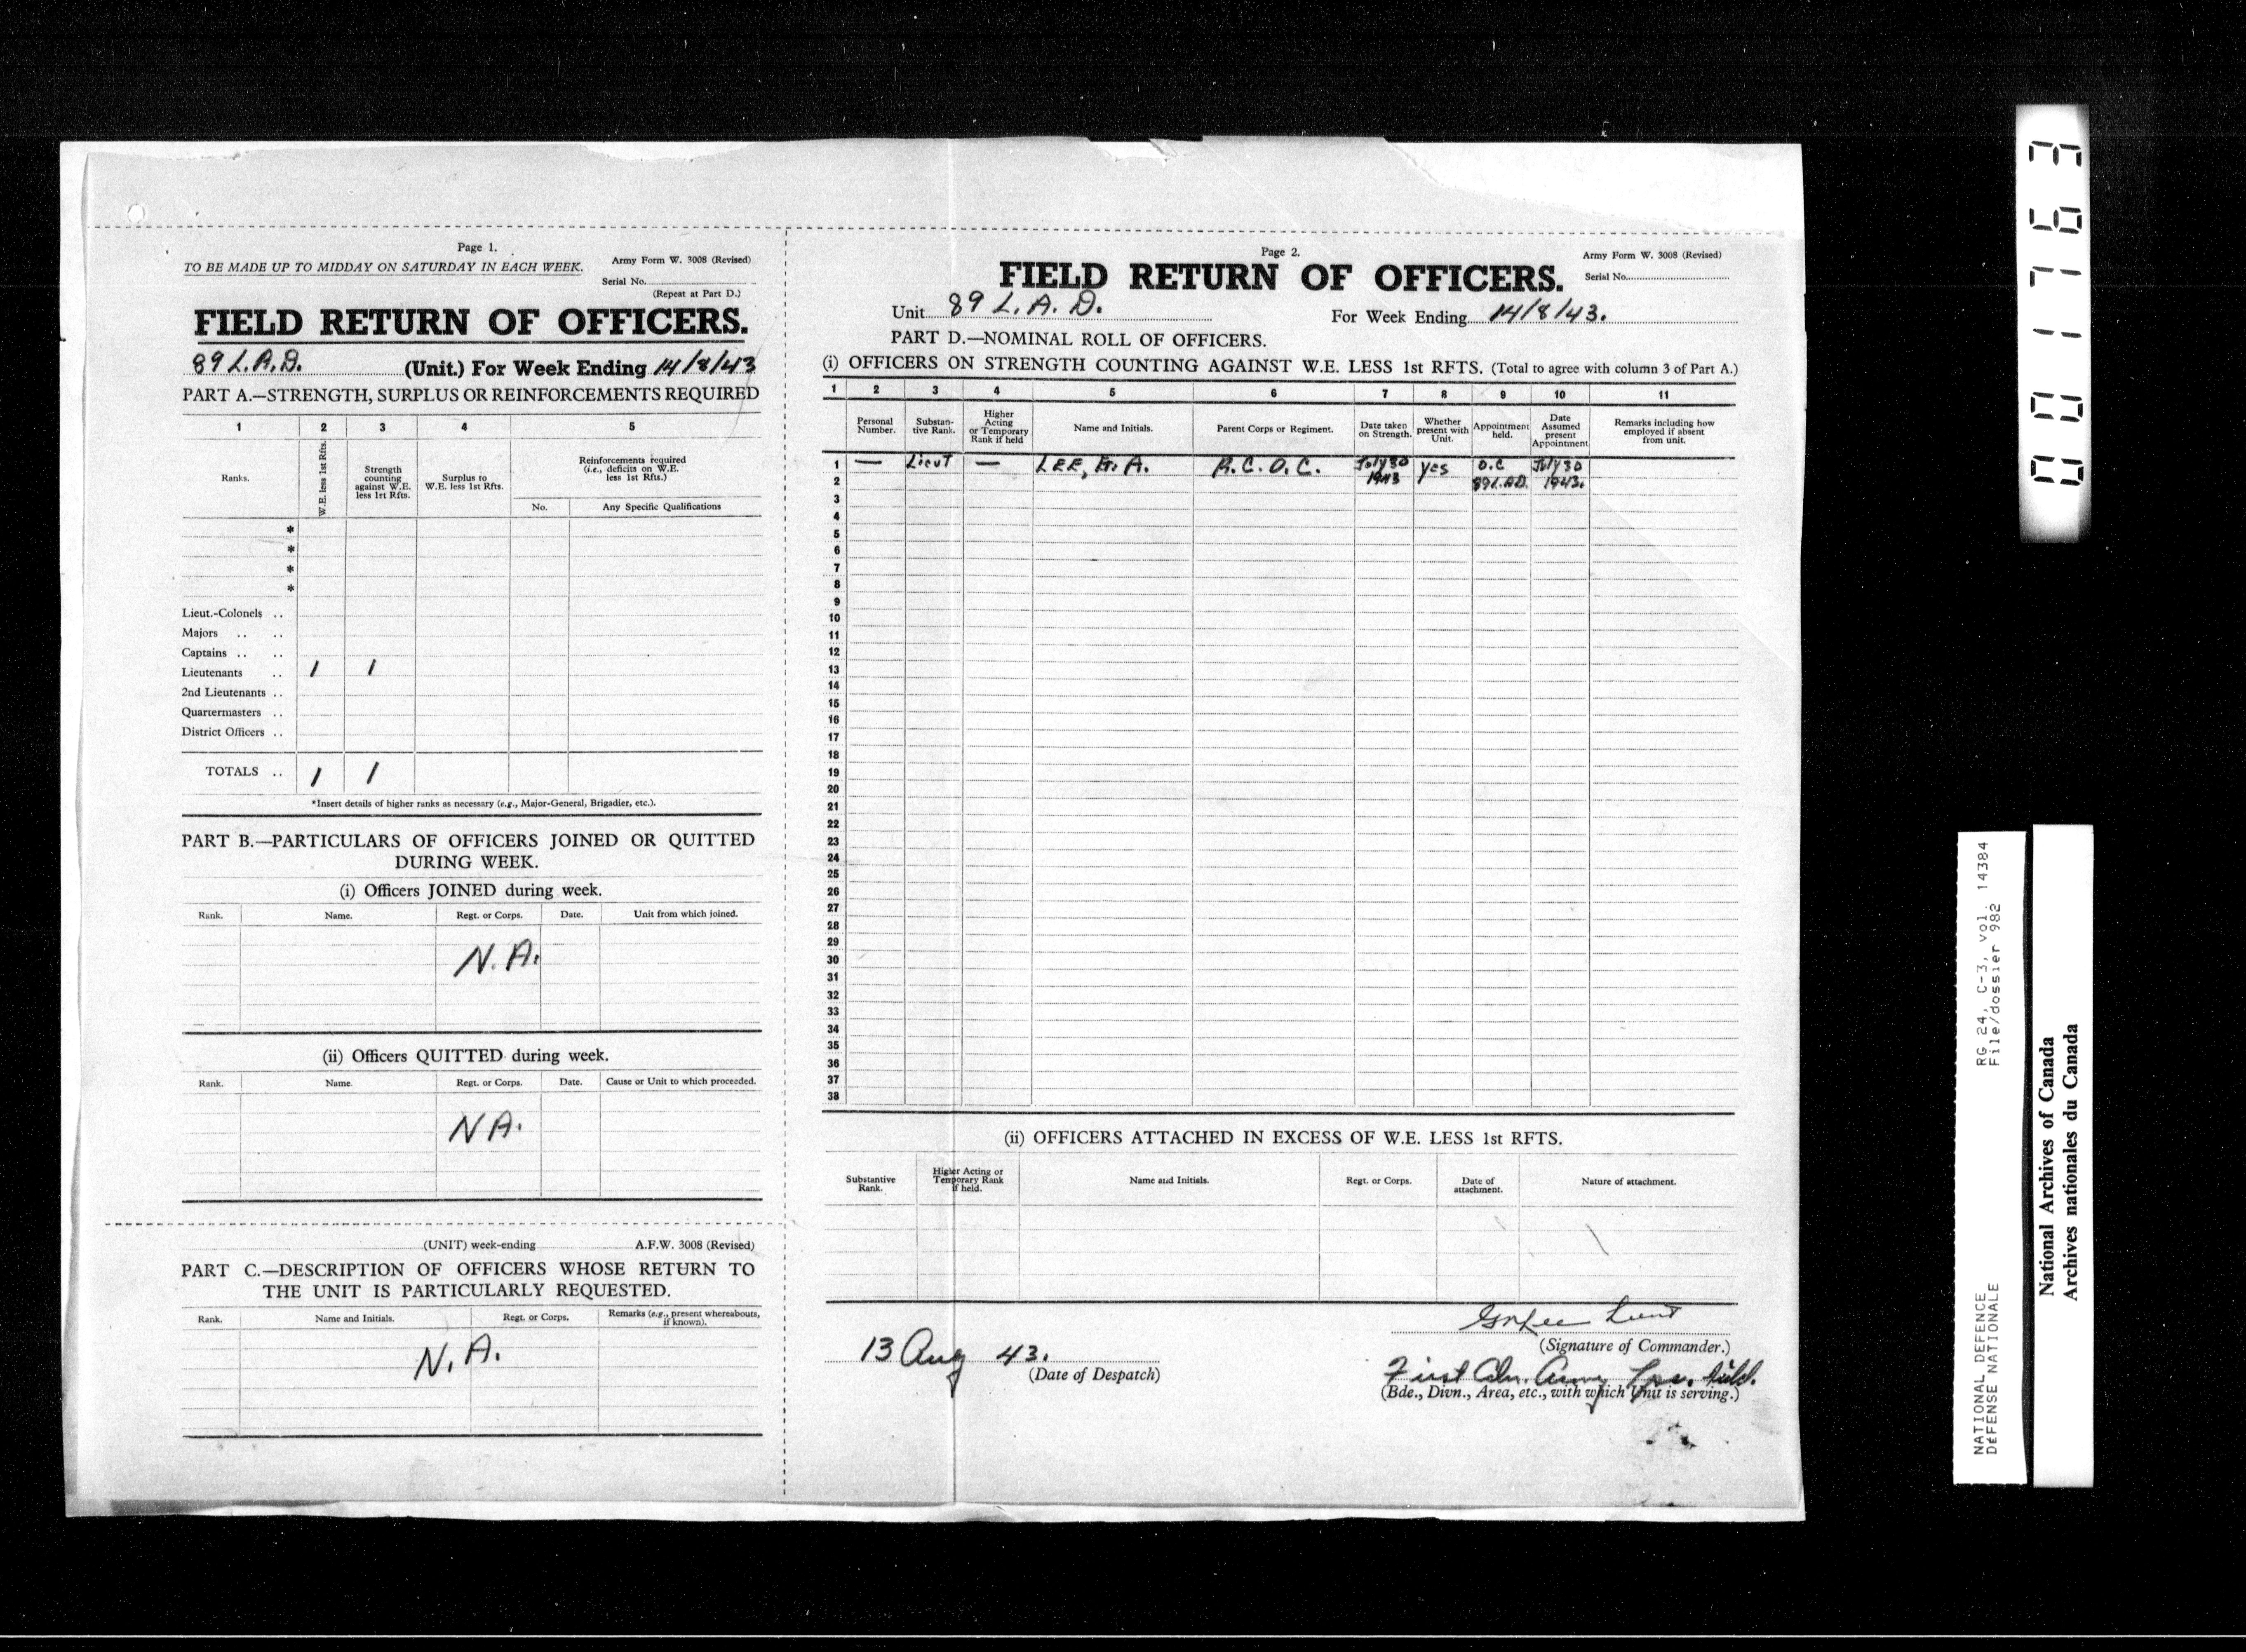 Page 1.
TO BE MADE UP TO MIDDAY ON SATURDAY IN EACH WEEK.
Army Form W. 3008 (Revised)
Serial No.
(Repeat at Part D.)
FIELD RETURN OF OFFICERS.
89 L.A.D. (Unit.) For Week Ending 14/8/43
PART A.—STRENGTH, SURPLUS OR REINFORCEMENTS REQUIRED
1 2 3 4 5
Ranks.
W.E. less 1st Rfts.
Strength counting against W.E. less 1st Rfts.
Surplus to W.E. less 1st Rfts.
Reinforcements required (i.e., deficits on W.E. less 1st Rfts.)
No. Any Specific Qualifications
*
*
*
*
Lieut.-Colonels ..
Majors .. ..
Captains .. ..
Lieutenants .. 1 1
2nd Lieutenants ..
Quartermasters ..
District Officers ..
TOTALS .. 1 1
*Insert details of higher ranks as necessary (e.g., Major-General, Brigadier, etc.).
PART B.—PARTICULARS OF OFFICERS JOINED OR QUITTED
DURING WEEK.
(i) Officers JOINED during week.
Rank. Name. Regt. or Corps. Date. Unit from which joined.
N.A.
(ii) Officers QUITTED during week.
Rank. Name Regt. or Corps. Date. Cause or Unit to which proceeded.
NA.
(UNIT) week-ending A.F.W. 3008 (Revised)
PART C.—DESCRIPTION OF OFFICERS WHOSE RETURN TO
THE UNIT IS PARTICULARLY REQUESTED.
Rank. Name and Initials. Regt. or Corps. Remarks (e.g., present whereabouts, if known).
N.A.
Page 2.
Army Form W. 3008 (Revised)
FIELD RETURN OF OFFICERS.
Serial No.
Unit 89 L.A.D. For Week Ending 14/8/43.
PART D.—NOMINAL ROLL OF OFFICERS.
(i) OFFICERS ON STRENGTH COUNTING AGAINST W.E. LESS 1st RFTS. (Total to agree with column 3 of Part A.)
1 2 3 4 5 6 7 8 9 10 11
Personal Number.
Substantive Rank.
Higher Acting or Temporary Rank if held
Name and Initials.
Parent Corps or Regiment.
Date taken on Strength.
Whether present with Unit.
Appointment held.
Date Assumed present Appointment
Remarks including how employed if absent from unit.
1 — Lieut — LEE, G. A. R.C.O.C. July 30 yes O.C July 30
2 1943 89 L.AD. 1943.
3
4
5
6
7
8
9
10
11
12
13
14
15
16
17
18
19
20
21
22
23
24
25
26
27
28
29
30
31
32
33
34
35
36
37
38
(ii) OFFICERS ATTACHED IN EXCESS OF W.E. LESS 1st RFTS.
Substantive Rank.
Higher Acting or Temporary Rank if held.
Name and Initials.
Regt. or Corps.
Date of attachment.
Nature of attachment.
Lee Lieut
(Signature of Commander.)
13 Aug 43.
(Date of Despatch)
First Cdn. Army Tps.
(Bde., Divn., Area, etc., with which Unit is serving.)
001763
RG 24, C-3, vol. 14384
File/dossier 982
NATIONAL DEFENCE
DÉFENSE NATIONALE
National Archives of Canada
Archives nationales du Canada